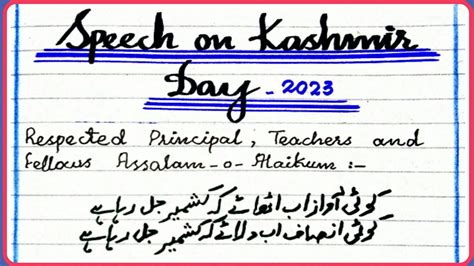 Speech on Kashmir
Day - 2023
Respected Principal, Teachers and
fellows Assalam-o-Alaikum :-
کوئی آواز اب اٹھائے کہ کشمیر جل رہا ہے
کوئی انصاف اب دلائے کہ کشمیر جل رہا ہے